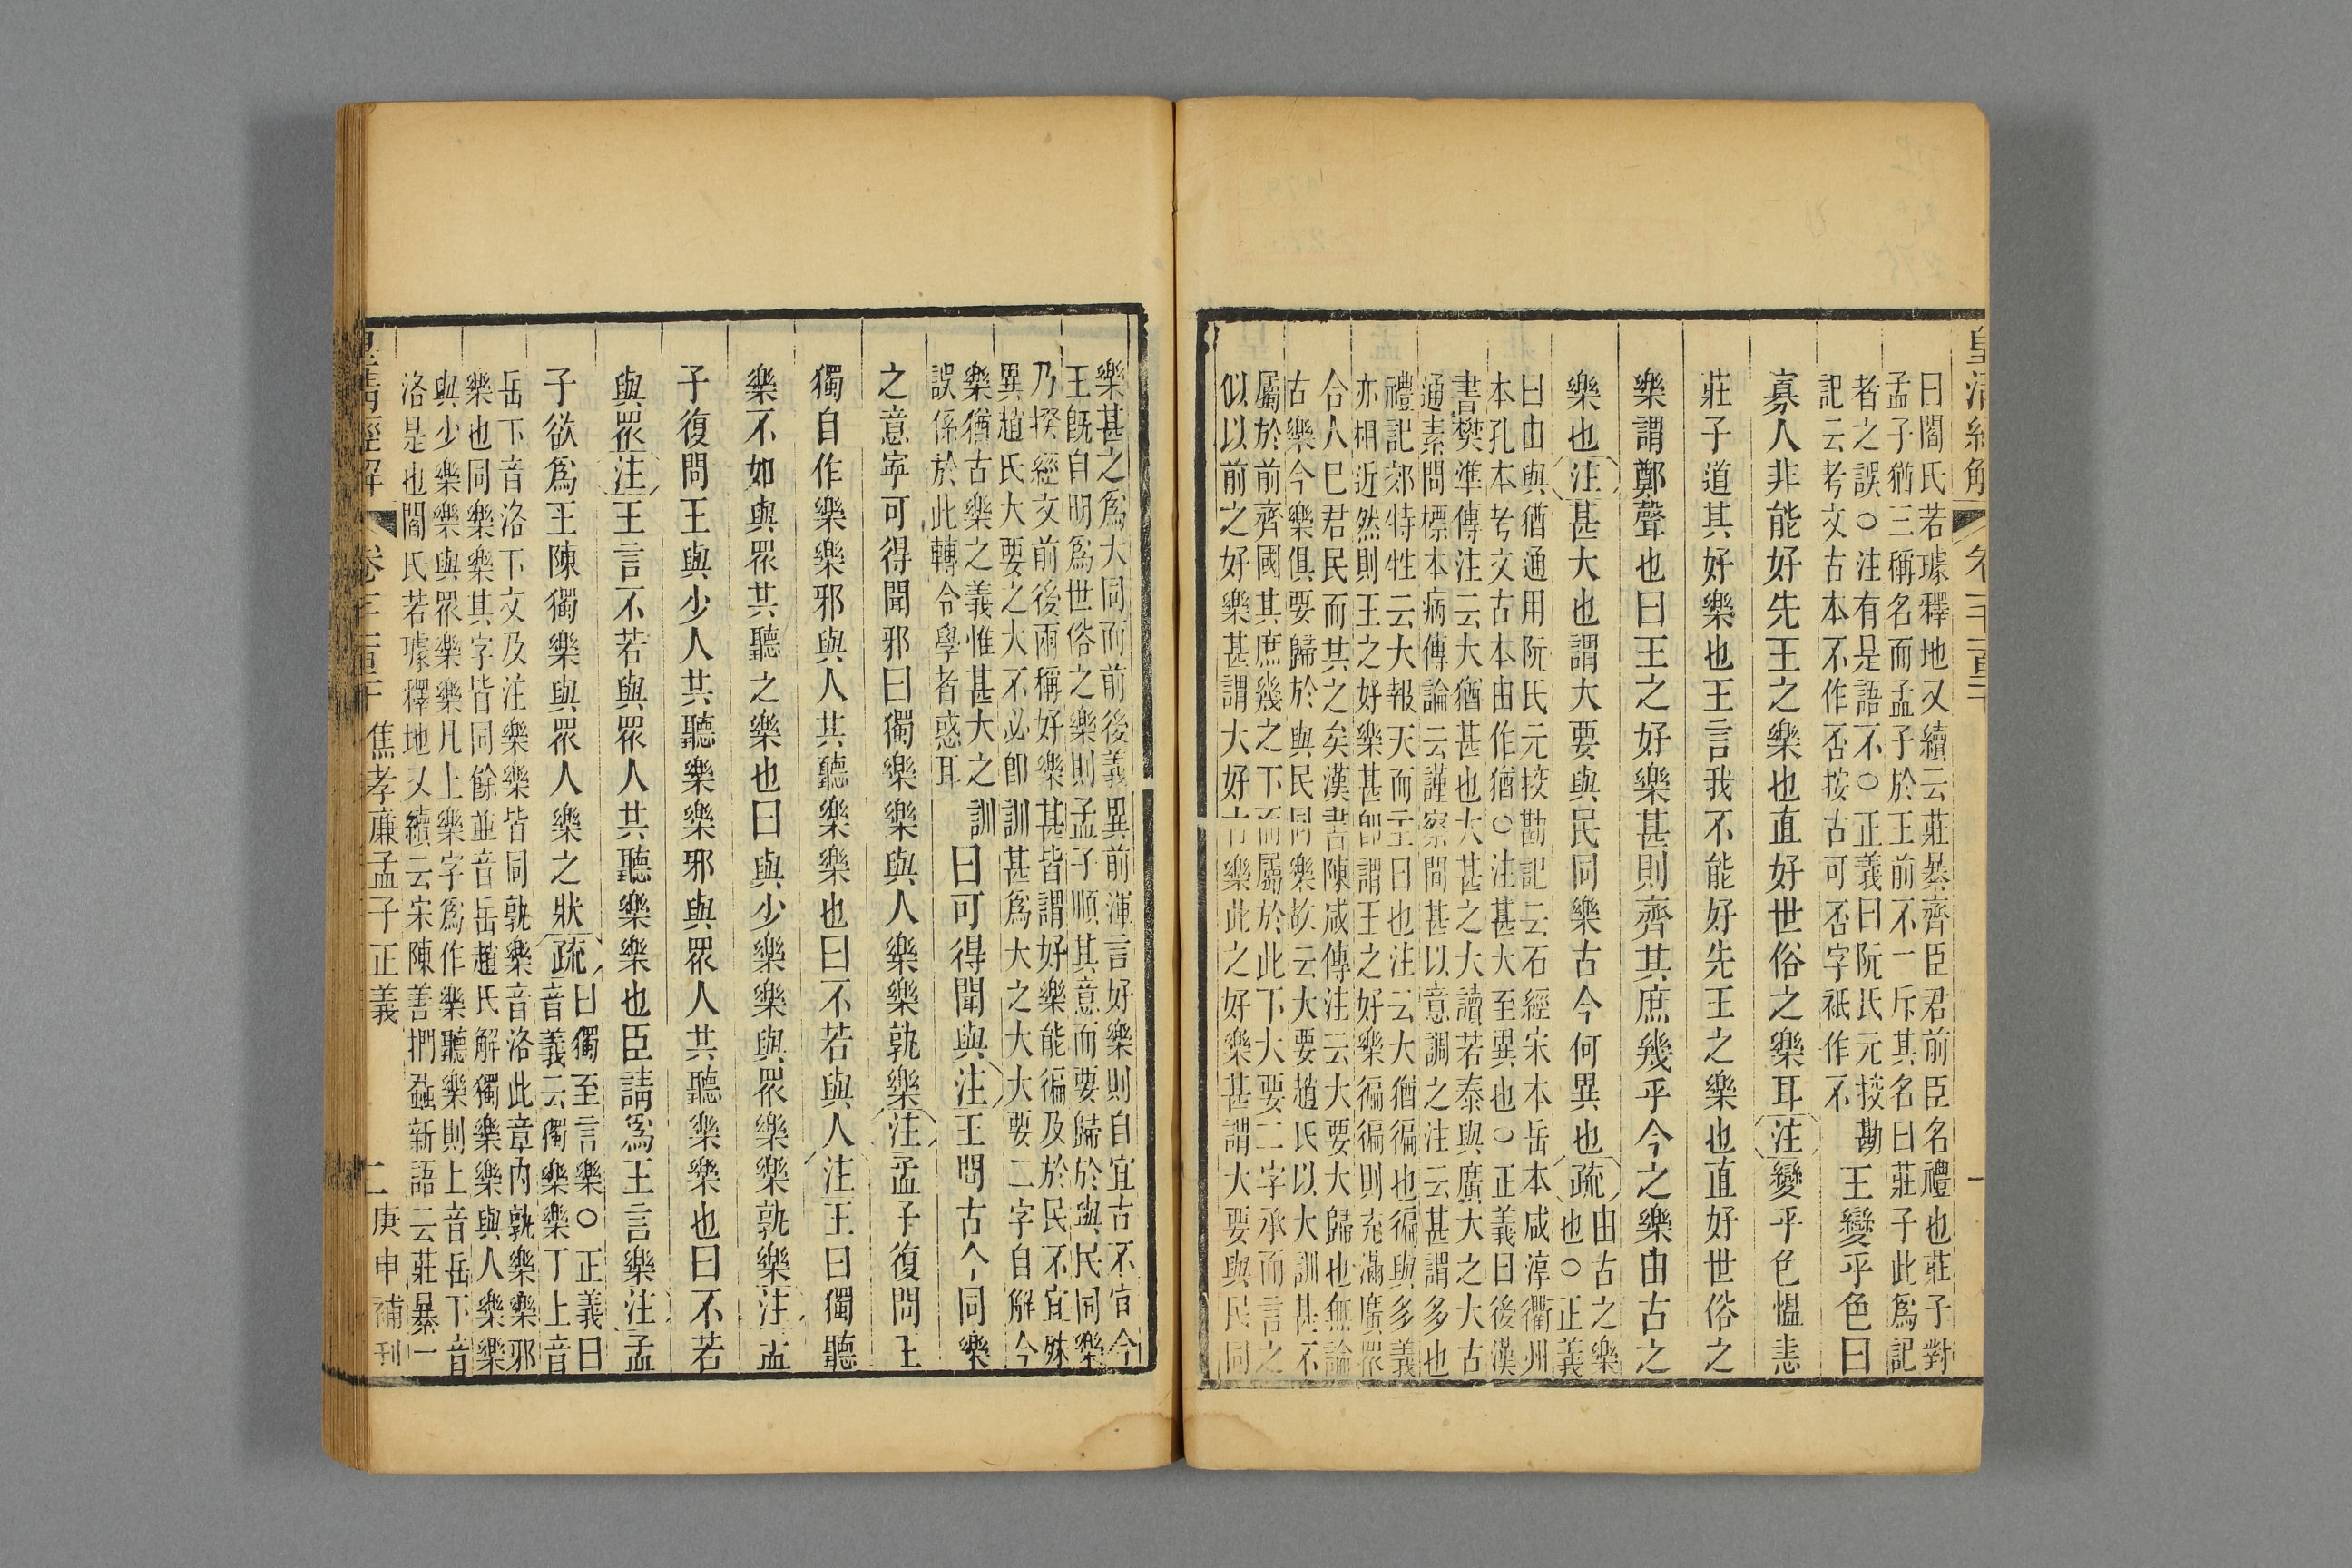 皇清經解
曰閻氏若璩釋地又續云莊暴齊臣君前臣名禮也莊子對
孟子猶三稱名而孟子於王前不一斥其名曰莊子此爲記
者之誤○注有是語不○正義曰阮氏元挍勘
記云考文古本不作否按古可否字祇作不
王變乎色曰
寡人非能好先王之樂也直好世俗之樂耳注變乎色慍恚
莊子道其好樂也王言我不能好先王之樂也直好世俗之
樂謂鄭聲也曰王之好樂甚則齊其庶幾乎今之樂由古之
樂也注甚大也謂大要與民同樂古今何異也疏由古之樂
也○正義
曰由與猶通用阮氏元挍勘記云石經宋本岳本咸淳衢州
本孔本考文古本由作猶○注甚大至異也○正義曰後漢
書樊準傳注云大猶甚也大甚之大讀若泰與廣大之大古
通素問標本病傳論云謹察間甚以意調之注云甚謂多也
禮記郊特牲云大報天而主日也注云大猶徧也徧與多義
亦相近然則王之好樂甚卽謂王之好樂徧徧則充滿廣眾
合人巳君民而其之矣漢書陳咸傳注云大要大歸也無論
古樂今樂俱要歸於與民同樂故云大要趙氏以大訓甚不
屬於前齊國其庶幾之下而屬於此下大要二字承而言之
似以前之好樂甚謂大好古樂此之好樂甚謂大要與民同
樂甚之爲大同而前後義異前渾言好樂則自宜古不宜今
王旣自明爲世俗之樂則孟子順其意而要歸於與民同樂
乃揆經文前後兩稱好樂甚皆謂好樂能徧及於民不宜殊
異趙氏大要之大不必卽訓甚爲大之大大要二字自解今
樂猶古樂之義惟甚大之訓
誤係於此轉令學者惑耳
曰可得聞與注王問古今同樂
之意寜可得聞邪曰獨樂樂與人樂樂孰樂注孟子復問王
獨自作樂樂邪與人共聽樂樂也曰不若與人注王曰獨聽
樂不如與眾共聽之樂也曰與少樂樂與眾樂樂孰樂注孟
子復問王與少人共聽樂樂邪與眾人共聽樂樂也曰不若
與眾注王言不若與眾人共聽樂樂也臣請爲王言樂注孟
子欲爲王陳獨樂與眾人樂之狀疏曰獨至言樂○正義曰
音義云獨樂樂丁上音
岳下音洛下文及注樂樂皆同孰樂音洛此章內孰樂樂邪
樂也同樂樂其字皆同餘並音岳趙氏解獨樂樂與人樂樂
與少樂樂與眾樂樂凡上樂字爲作樂聽樂則上音岳下音
洛是也閻氏若璩釋地又續云宋陳善捫蝨新語云莊暴一
焦孝廉孟子正義
二
庚申補刊